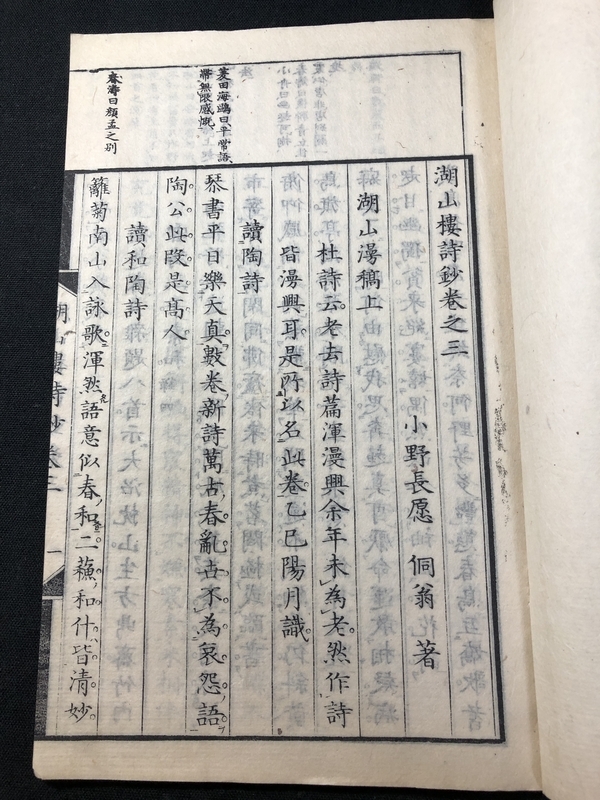 湖山樓詩鈔卷之三
小野長愿 侗翁 著
湖山漫稿上
杜詩云。老去詩篇渾漫興余年未為老。然作詩
皆漫興耳是所以名此卷乙巳陽月識。
讀陶詩
琴書平日樂天真數卷新詩萬古春亂世不為哀怨語
陶公此段是高人
讀和陶詩
籬菊南山入詠歌。渾然語意似春和。二蘓和什皆清妙。
菱田海鷗曰平常語。
帶無限感慨。
春濤曰顏孟之別
湖山樓詩鈔卷三
一